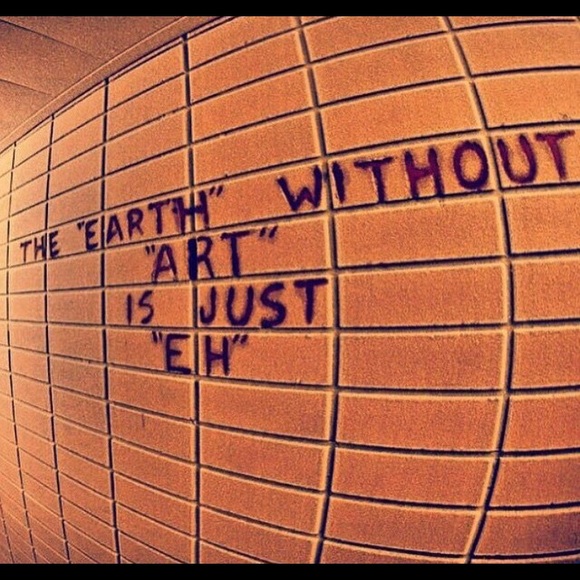 THE "EARTH" WITHOUT
"ART"
IS JUST
"EH"